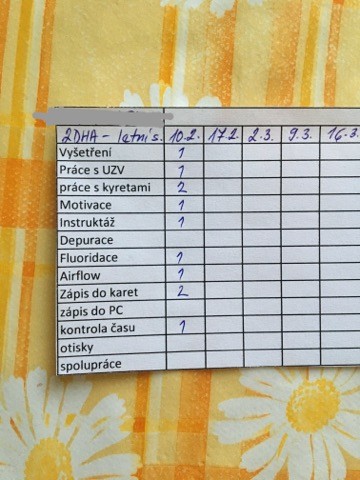 2DHA - letní s. 10.2. 17.2. 2.3. 9.3. 16.3.
Vyšetření 1
Práce s UZV 1
práce s kyretami 2
Motivace 1
Instruktáž 1
Depurace
Fluoridace 1
Airflow 1
Zápis do karet 2
zápis do PC
kontrola času 1
otisky
spolupráce